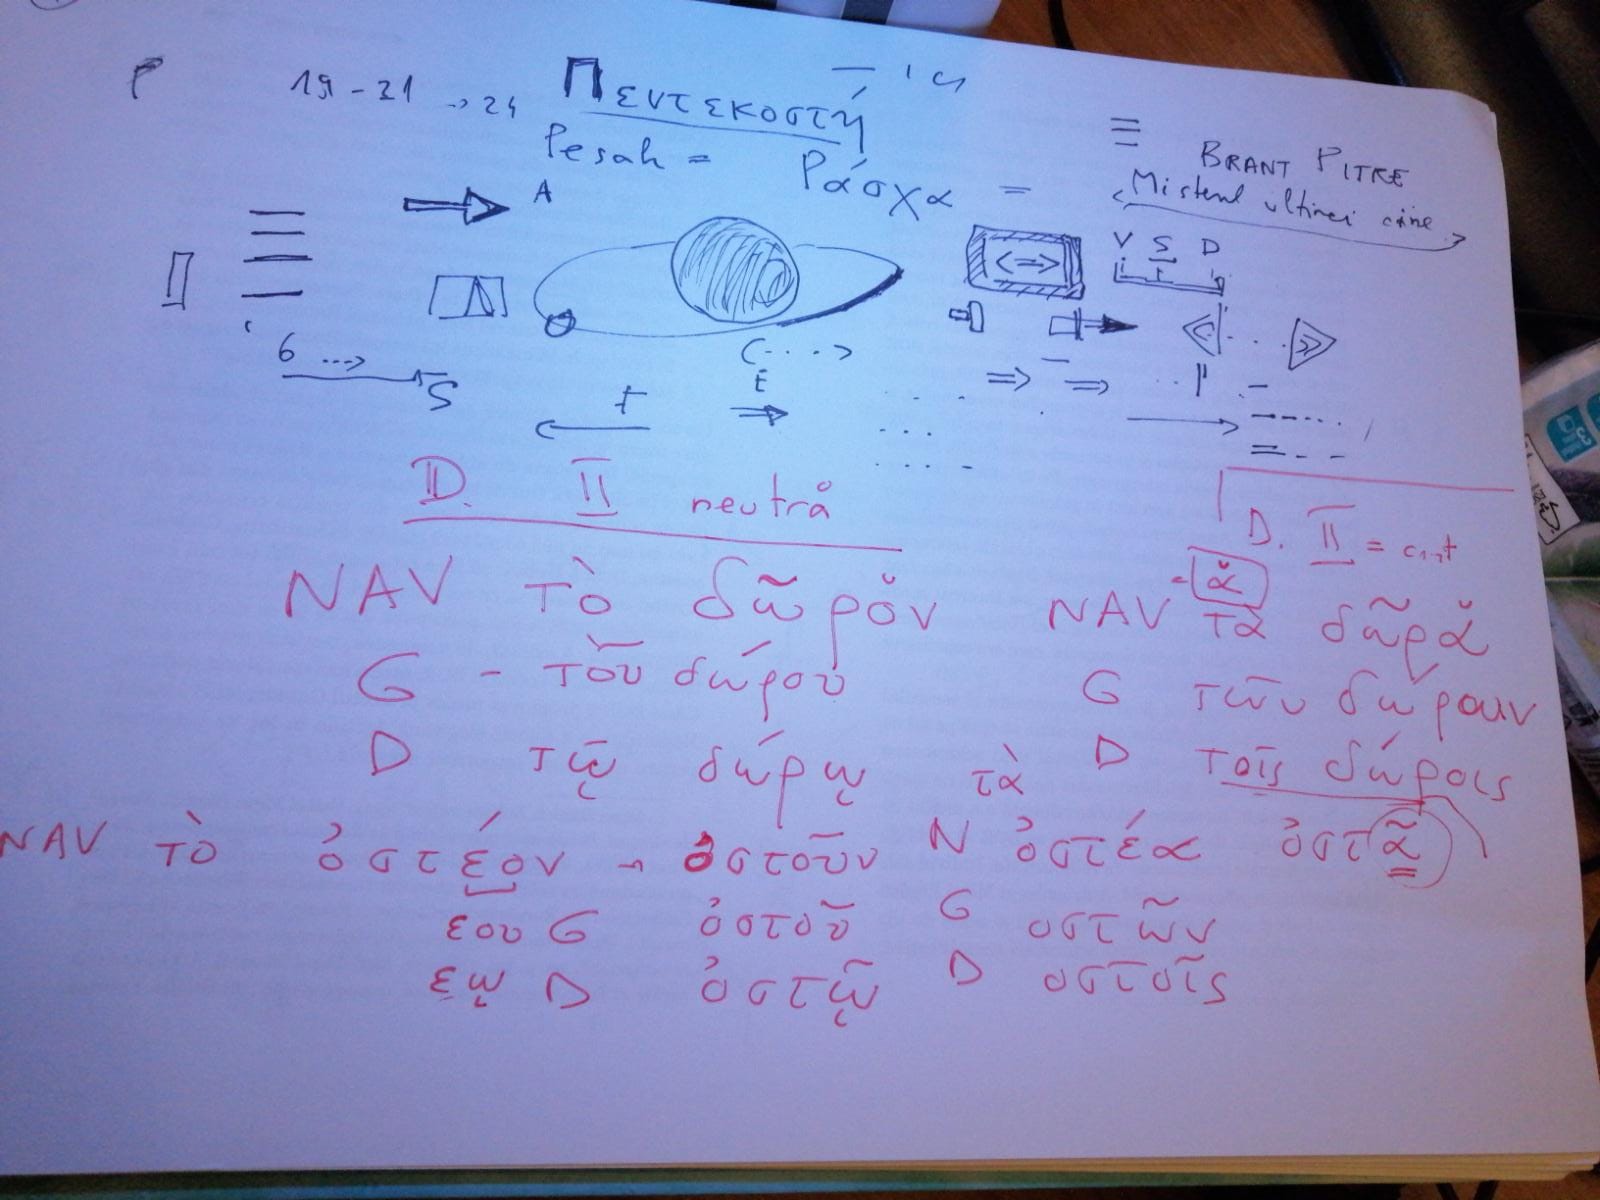 19-21 → 24 Πεντεκοστή
Pesah = Ράσχα =
BRANT PITRE
Misterul ultimei cine
A
V S D
6 ...→ S
t
E
D. II neutră
D. II =
NAV τὸ δῶρŏν
G - τοῦ δώρου
D τῷ δώρῳ
ᾰ
NAV τὰ δῶρᾰ
G τῶν δώρων
D τοῖς δώροις
τὰ
NAV τὸ ὀστέον - ὀστοῦν N ὀστέα ὀστᾶ
εου G ὀστοῦ G οστῶν
εῳ D ὀστῷ D οστοῖς